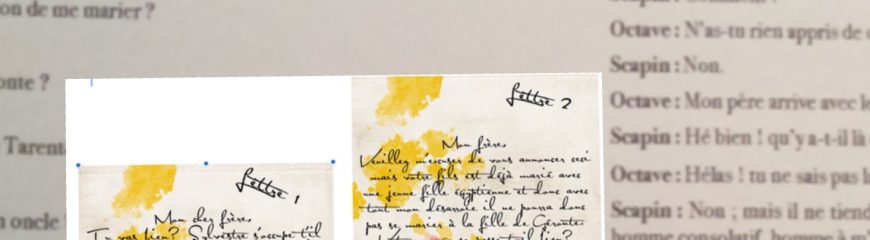 on de me marier ?
onte ?
Tarent
n oncle
Lettre 1
Mon cher frère,
Tu vas bien? Sylvestre s'occupe t'il
Lettre 2
Mon frère,
Veuillez m'excuser de vous annoncer ceci
mais votre fils est déjà marié avec
une jeune fille égyptienne et donc avec
tout mon désarroie il ne pourra donc
pas se marier à la fille de Géronte.
Octave : N'as-tu rien appris de
Scapin : Non.
Octave : Mon père arrive avec le
Scapin : Hé bien ! qu'y a-t-il là
Octave : Hélas ! tu ne sais pas l
Scapin : Non ; mais il ne tiend
homme consolatif, homme à m'